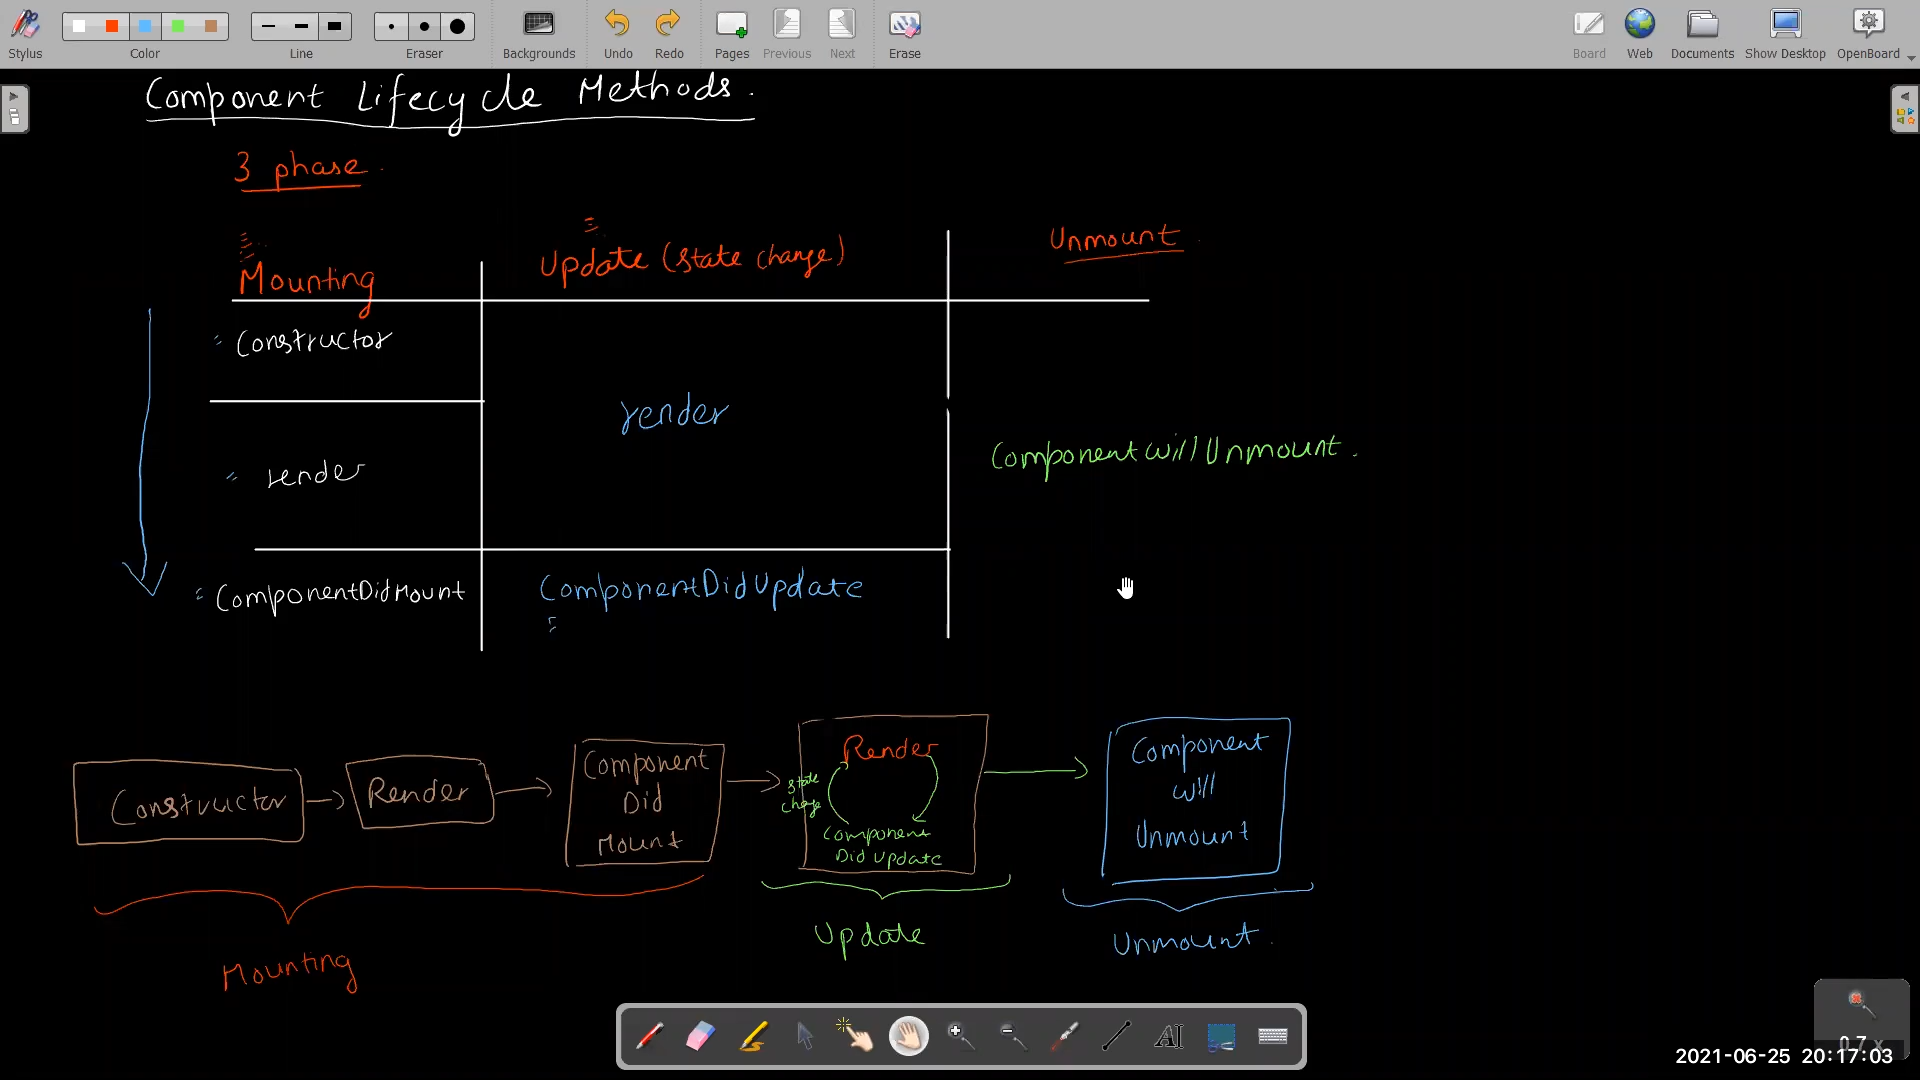 Stylus Color Line Eraser Backgrounds Undo Redo Pages Previous Next Erase Board Web Documents Show Desktop OpenBoard
Component Lifecycle Methods.
3 phase.
Mounting Update (state change) Unmount
Constructor
render
render
ComponentWillUnmount.
ComponentDidMount ComponentDidUpdate
Constructor
Render
Component
Did
Mount
Render
state
change
Component
Did Update
Component
Will
Unmount
Mounting
Update
Unmount.
AI
0.7 x
2021-06-25 20:17:03